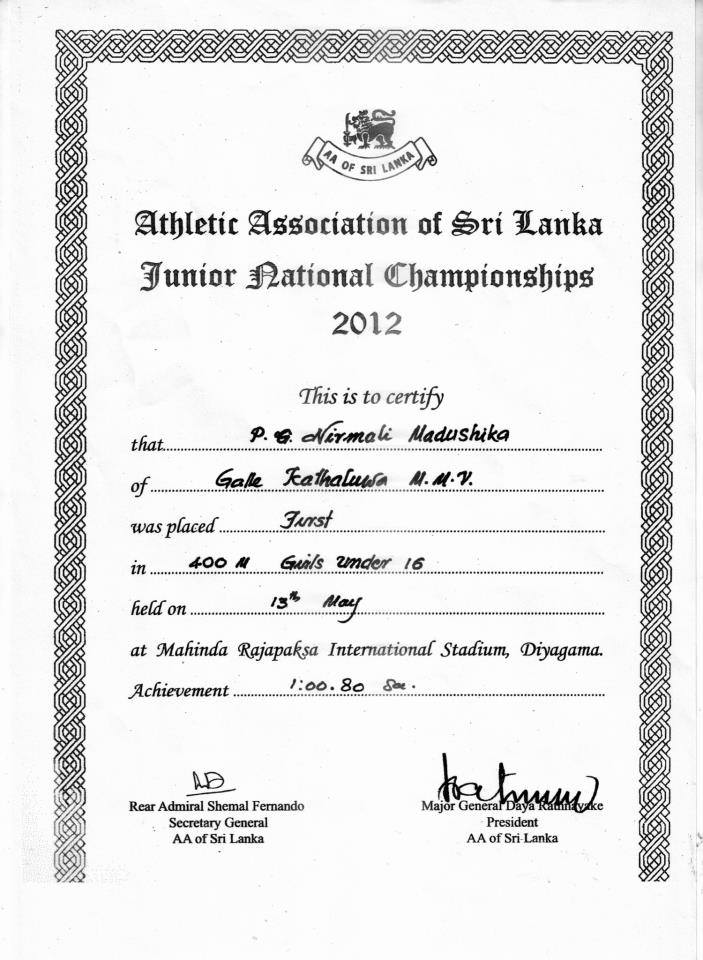 AA OF SRI LANKA
Athletic Association of Sri Lanka
Junior National Championships
2012
This is to certify
that P. G. Nirmali Madushika
of Galle Kathaluwa M.M.V.
was placed First
in 400 M Girls Under 16
held on 13th May
at Mahinda Rajapaksa International Stadium, Diyagama.
Achievement 1:00.80 Sec.
Rear Admiral Shemal Fernando
Secretary General
AA of Sri Lanka
Major General Daya Rathnayake
President
AA of Sri Lanka